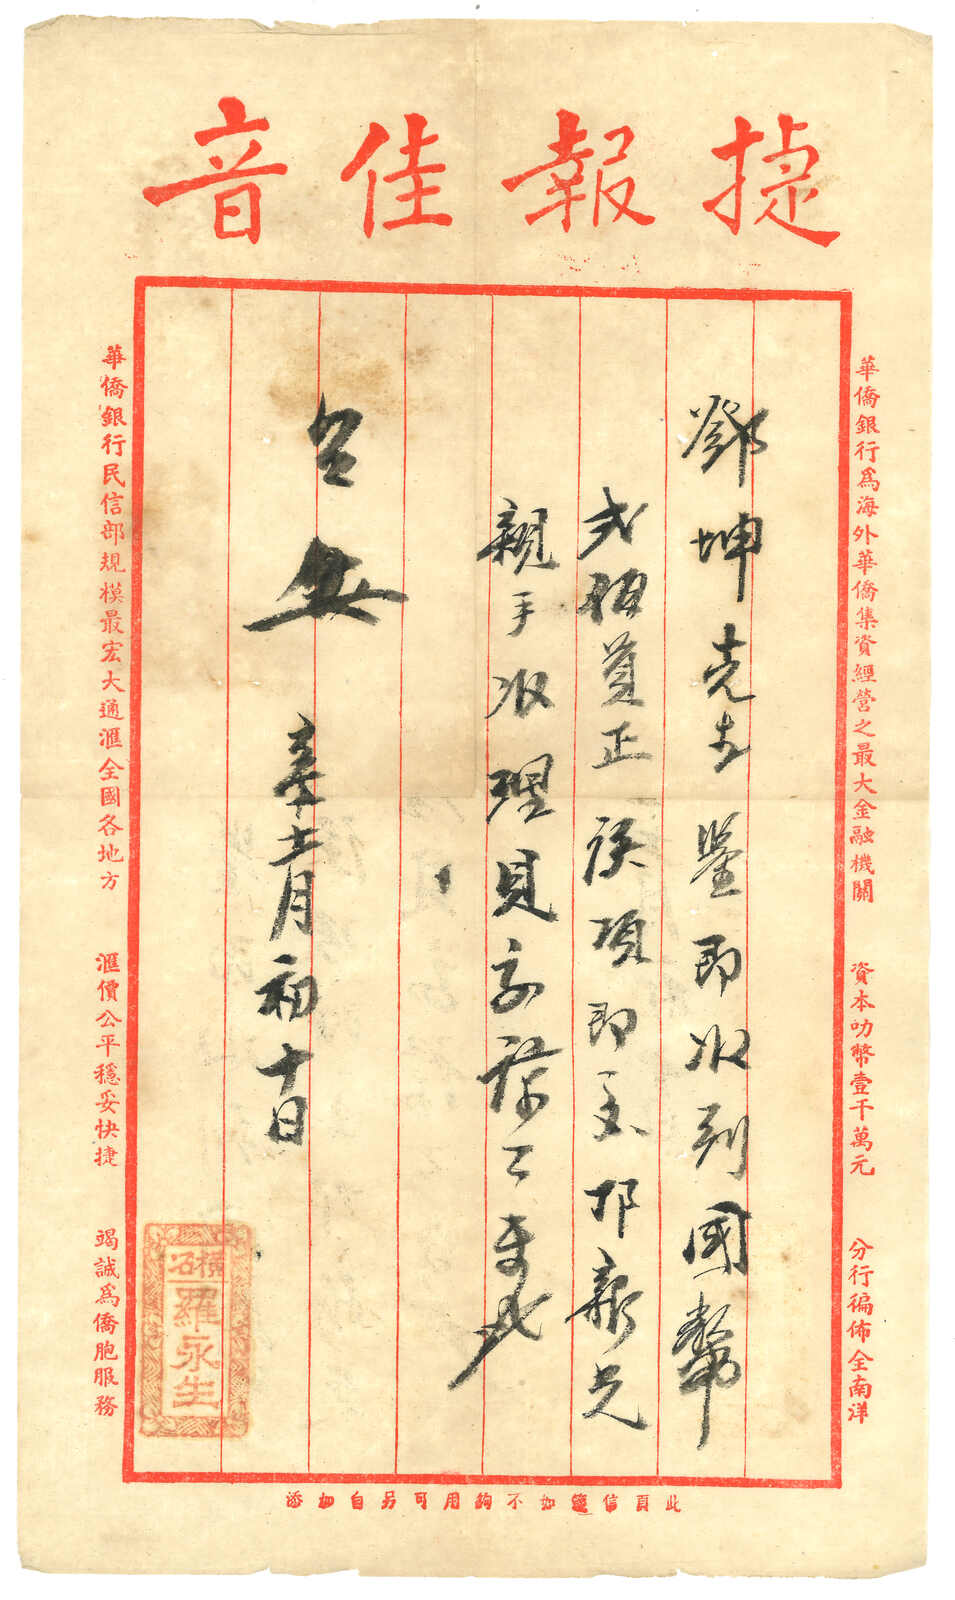 捷報佳音
華僑銀行爲海外華僑集資經營之最大金融機關 資本叻幣壹千萬元 分行徧佈全南洋
鄧坤先生鑒即收到國幣
弍佰員正 該項即交邝新兄
親手收理見字
台安
辛十一月初十日
華僑銀行民信部規模最宏大通滙全國各地方 滙價公平穩妥快捷 竭誠爲僑胞服務
橫石
羅永生
此頁信箋如不夠用可另自加添